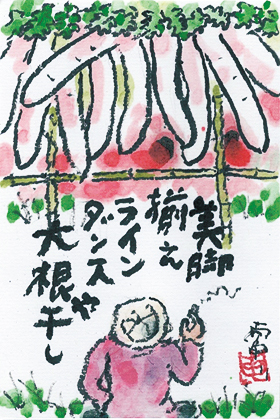 美脚
揃え
ライン
ダンスや
大根干し